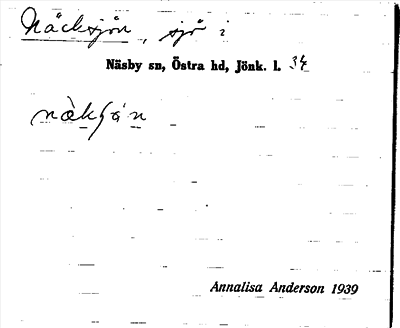 Näcksjön, sjö i
Näsby sn, Östra hd, Jönk. l. 34
nà̱kʃö̱n
Annalisa Anderson 1939